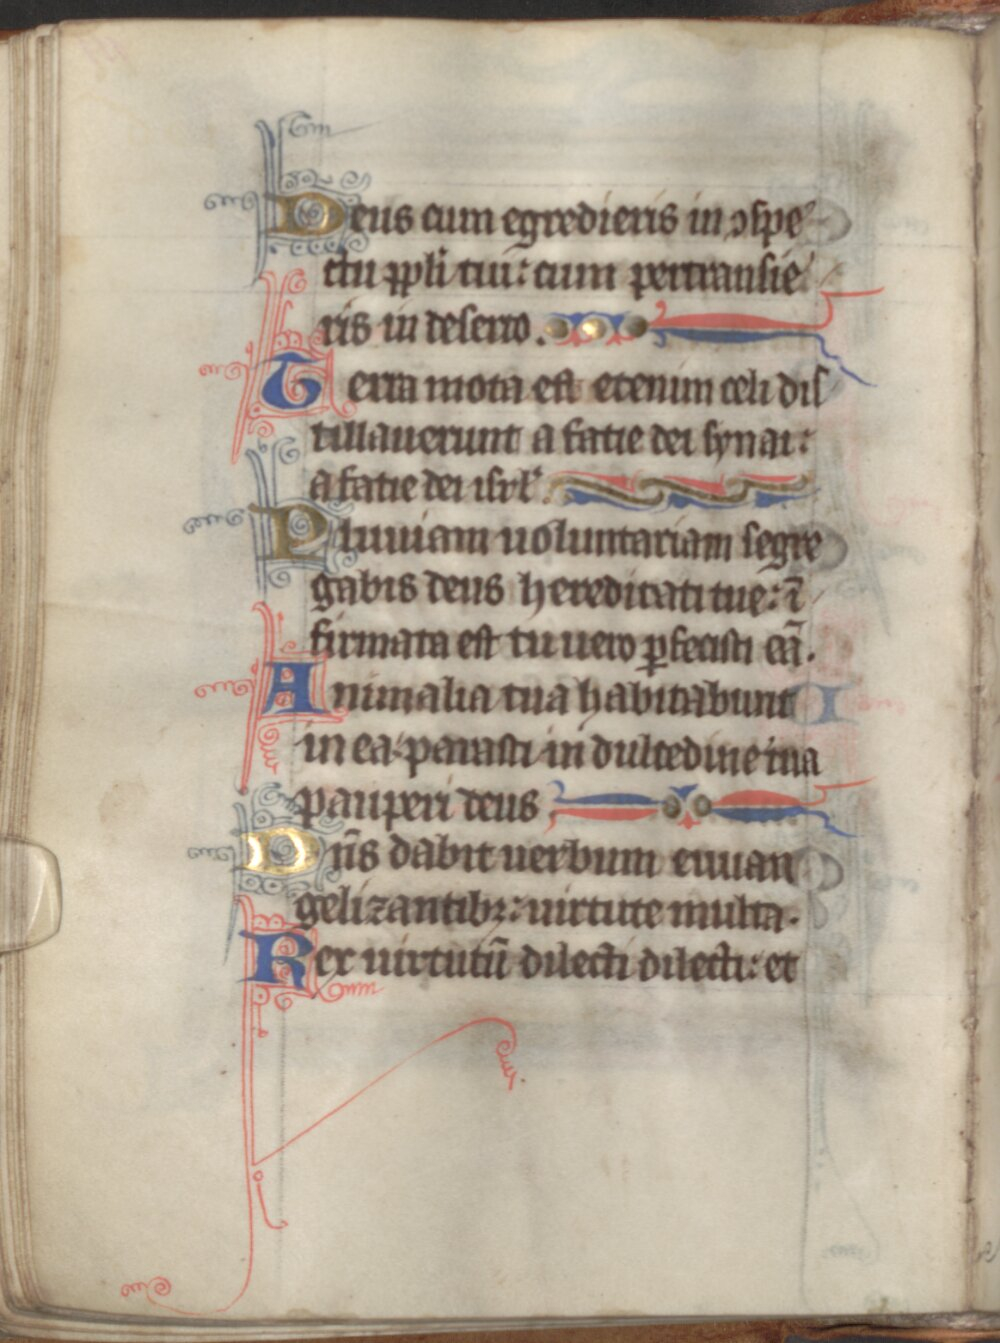 Deus cum egredieris in ꝯspe
ctu ppłi tui: cum pertransie
ris in deserto.
Terra mota est etenim celi dis
tillauerunt a facie dei synai:
a facie dei isrł.
Pluuiam uoluntariam segre
gabis deus hereditati tue: ⁊ ĩ
firmata est tu uero ꝑfecisti eã.
Animalia tua habitabunt
in ea: parasti in dulcedine tua
pauperi deus
Dñs dabit uerbum euuan
gelizantibꝫ: uirtute multa.
Rex uirtutũ dilecti dilecti: et